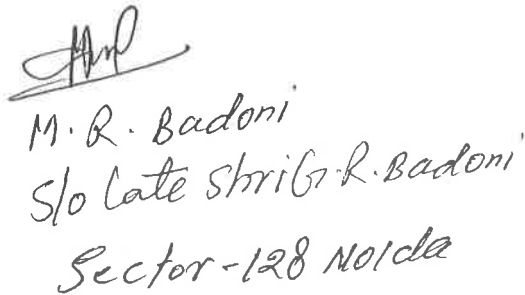 M. R. Badoni
S/o Late Shri G.R. Badoni
Sector-128 Noida